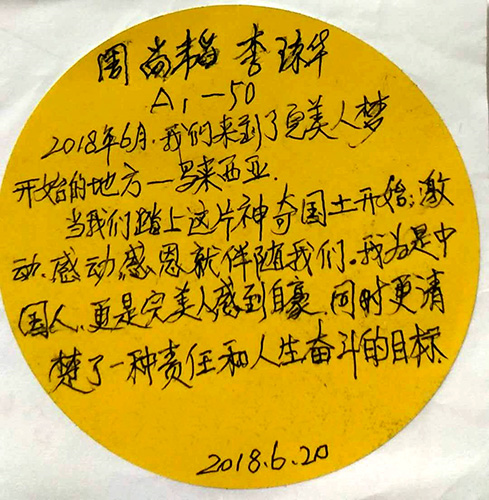 周尚韬 李琼华
A1—50
2018年6月.我们来到了完美人梦
开始的地方—马来西亚.
当我们踏上这片神奇国土开始;激
动.感动感恩就伴随我们。我为是中
国人.更是完美人感到自豪.同时更清
楚了一种责任和人生奋斗的目标.
2018.6.20